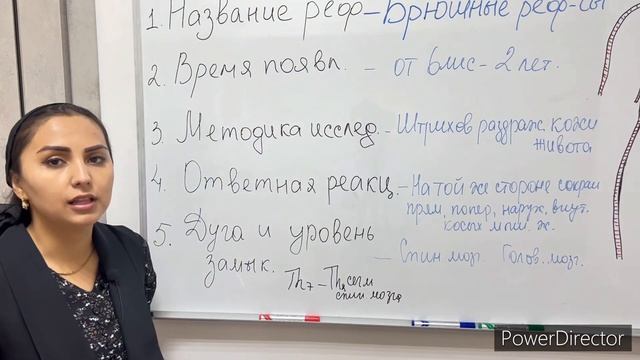 1. Название реф – Брюшные реф-сы
2. Время появл. – от 6 мес – 2 лет.
3. Методика исслед. – Штрихов раздраж. кожи
живота
4. Ответная реакц. – На той же стороне сокращ
прям, попер, наруж, внут.
косых мышц ж.
5. Дуга и уровень
замык.
– Спин мозг. Голов. мозг.
Th7 – Th8 сегм
спин мозга
PowerDirector